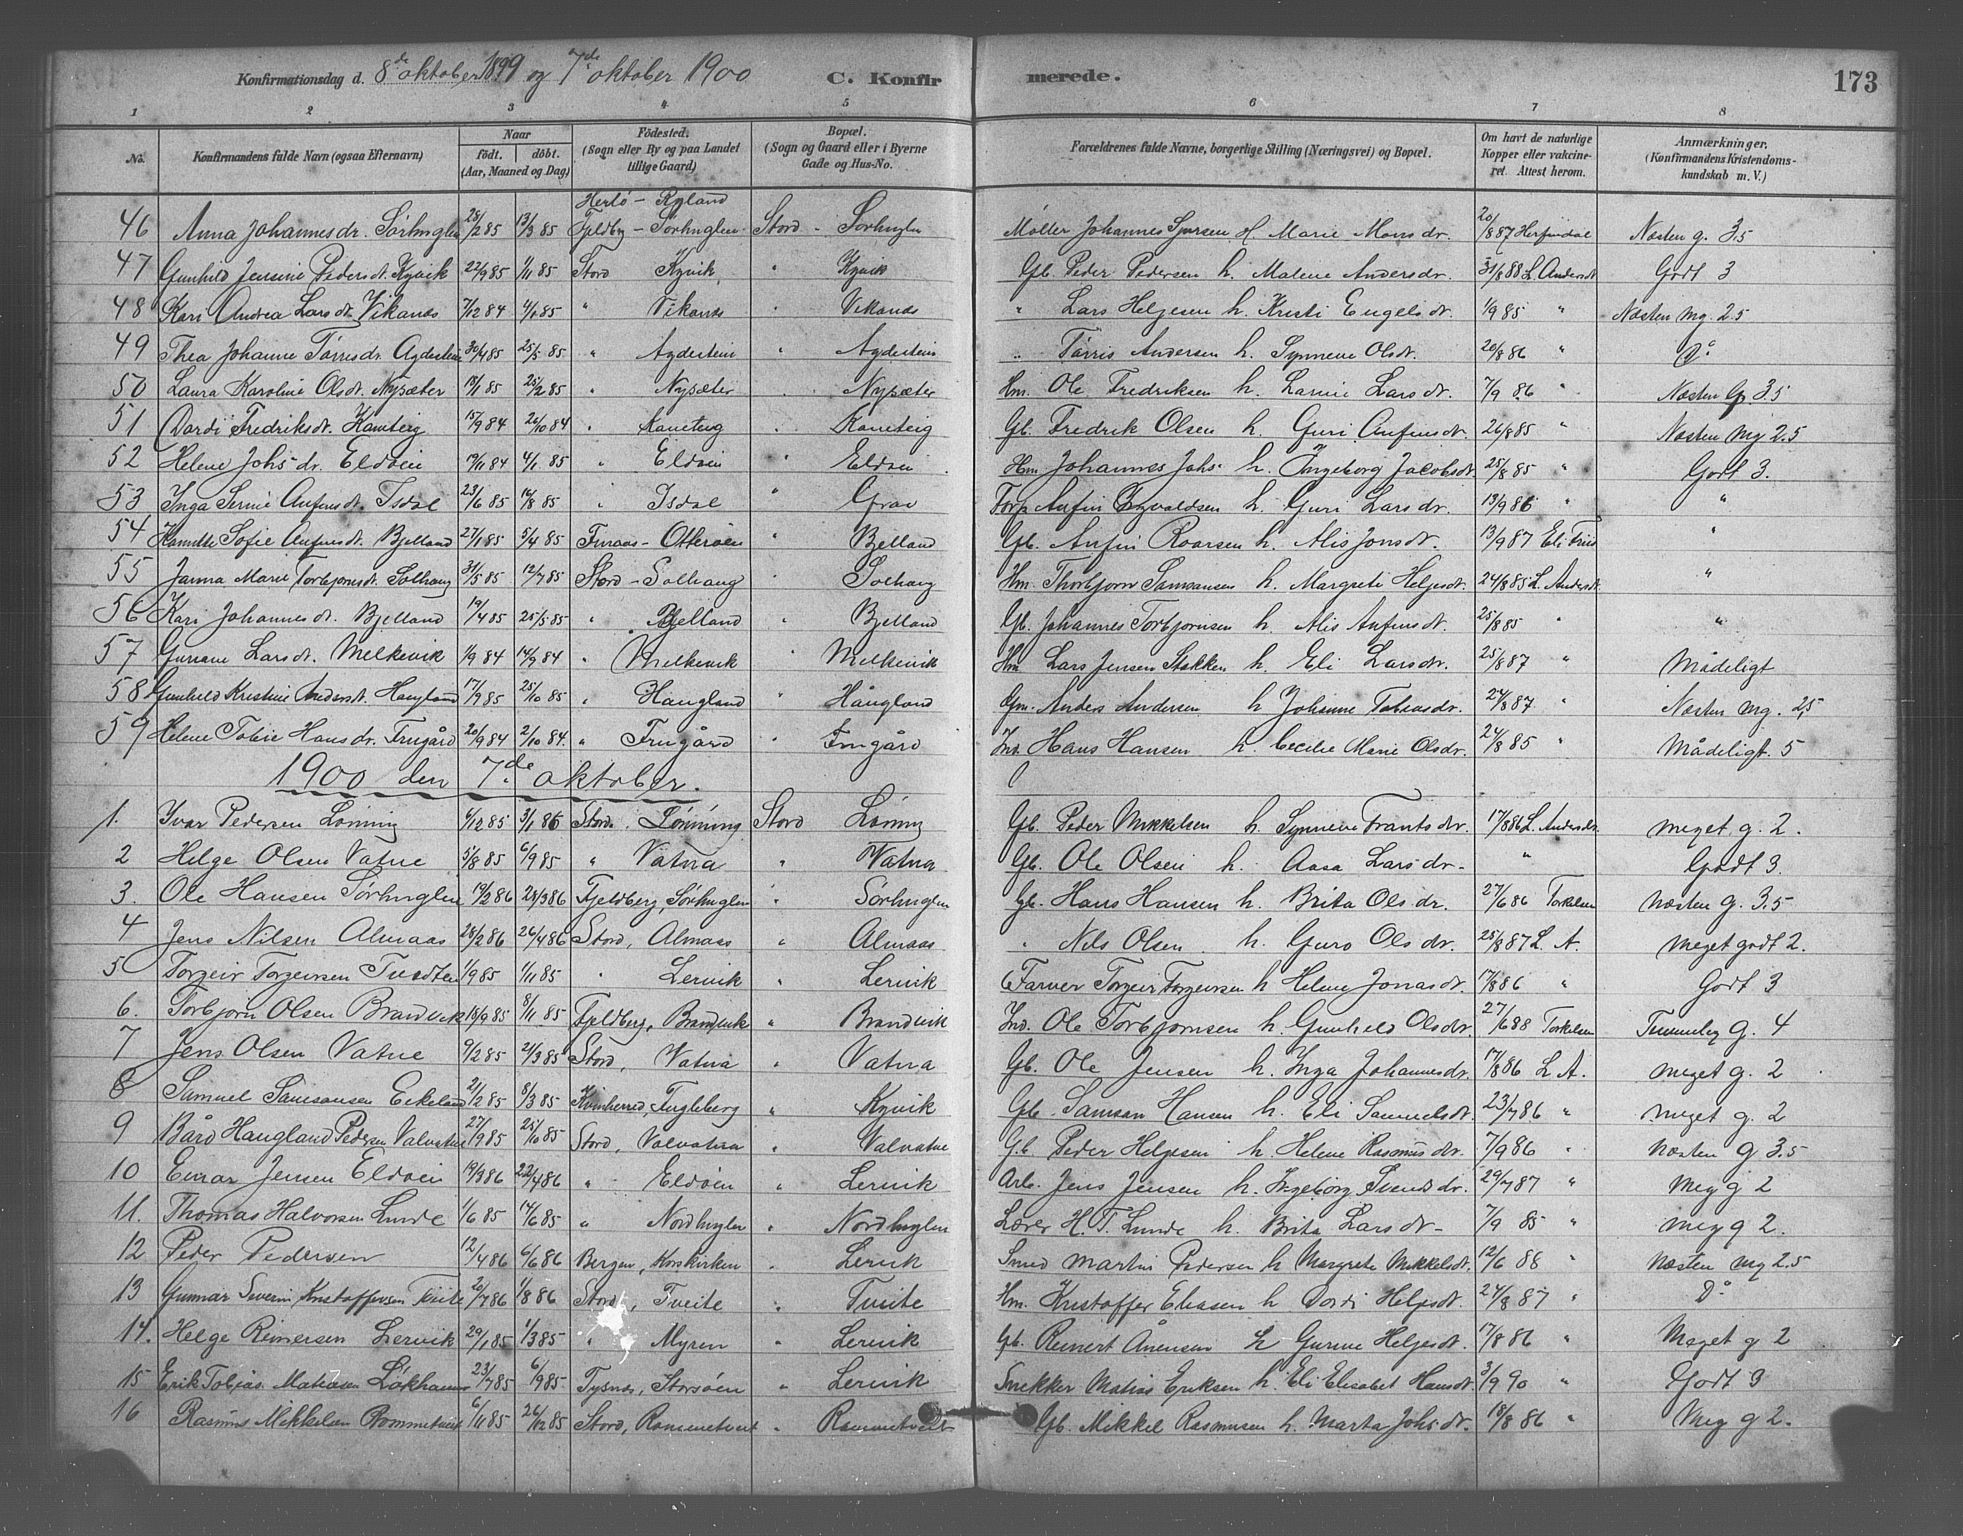 Konfirmationsdag d. 8de oktober 1899 og 7de oktober 1900 C. Konfir merede. 173
1 2 3 4 5 6 7 8
No. Konfirmandens fulde Navn (ogsaa Efternavn) Naar födt. döbt. (Aar, Maaned og Dag) Födested. (Sogn eller By og paa Landet tillige Gaard) Bopæl. (Sogn og Gaard eller i Byerne Gade og Hus-No. Forældrenes fulde Navne, borgerlige Stilling (Næringsvei) og Bopæl. Om havt de naturlige Kopper eller vakcineret. Attest herom. Anmærkninger. (Konfirmandens Kristendomskundskab m. V.)
46 Anna Johannesdr. Sørhuglen 28/2 85 13/3 85 Herlø - Ryland Fjeldbg - Sørhuglen Stord - Sørhuglen Møller Johannes Sjursen h. Marie Monsdr. 20/8 87 Næsten g. 3.5
47 Gunhild Jensine Pedersdt. Kyvik 22/9 85 1/11 85 Stord Kyvik " Kyvik Gb. Peder Pedersen h. Malene Andersdr. 31/8 88 L. Andersdt Godt 3
48 Kari Andrea Larsdt. Vikanes 7/12 84 4/1 85 " Vikanes " Vikanes " Lars Helgesen h. Kristi Engelsdt. 1/9 85 " Næsten mg. 2.5
49 Thea Johanne Tørrisdr. Agdestein 30/4 85 25/5 85 " Agdestein " Agdestein " Tørris Andersen h. Synneve Olsdt. 20/8 86 " Do
50 Laura Karoline Olsdt. Nysæter 13/1 85 25/2 85 " Nysæter " Nysæter Hm. Ole Fredriksen h. Larsdr. 7/9 86 Næsten g. 3.5
51 Dordi Fredriksdt. 15/9 84 26/10 84 " " Gb. Fredrik Olsen h. Guri Anfinsdt. 26/8 85 " Næsten mg 2.5
52 Helene Johsdr. Eldøen 19/11 84 4/1 85 " Eldøen " Eldøen Hm Johannes Johs. h. Ingeborg Jacobsdt. 25/8 85 " Godt 3.
53 Inga Serine Anfinsdt. Isdal 23/6 85 16/8 85 " Isdal " Grov Anfin h. Guri Larsdr. 13/9 86 " "
54 Sofie Anfinsdt. Bjelland 27/1 85 5/4 85 Finaas - Otterøen " Bjelland Gb. Anfin Roarsen h. Alis Jonsdt. 13/9 87 "
55 Janna Marie Torbjørnsdt. Solhaug 31/5 85 12/7 85 Stord - Solhaug " Solhaug Hm. Thorbjørn Samsonsen h. Margreti Helgesdt. 24/8 85 L. Andersdt "
56 Kari Johannesdt. Bjelland 19/4 85 25/5 85 " Bjelland " Bjelland Gb. Johannes Torbjørnsen h. Alis Anfinsdt. 25/8 85 " "
57 Larsdt. Melkevik 1/9 84 14/9 84 " Melkevik " Melkevik Hm Lars Jensen Stokken h. Eli Larsdr. 25/8 87 " Mådeligt
58 Gunhild Kristine Andersdt. Haugland 17/9 85 25/10 85 " Haugland " Haugland Gm. Anders Andersen h Johanne Tobiasdr. 24/8 87 " Næsten mg. 2,5
59 Helene Tobie Hansdr. Frugård 20/9 84 2/10 84. " Frugård " Frugård Ind. Hans Hansen h. Cecilie Marie Olsdr. 24/8 85 " Mådeligt. 5
1900 den 7de oktober.
1. Ivar Pedersen Lønning 4/12 85 3/1 86 Stord, Lønning Stord Lønning Gb. Peder Mikkelsen h. Synneve Frantsdr. 17/8 86 L. Andersdr. meget g. 2.
2 Helge Olsen Vatne 5/8 85 6/9 85 " Vatna " Vatna Gb. Ole Olsen h. Aasa Larsdr. " Godt 3.
3. Ole Hansen Sørhuglen 19/2 86 28/3 86 Fjeldberg, Sørhuglen " Sørhuglen Gb. Hans Hansen h. Brita Olsdr. 27/6 86 Torkelsen næsten g. 3.5
4 Jens Nilsen Almaas 28/2 86 26/4 86 Stord, Almaas " Almaas " Nils Olsen h. Guro Olsdr. 25/8 87 L. A. meget godt 2.
5 Torgeir Torgeirsen 1/9 85 1/11 85 " Lervik " Lervik Farver Torgeir Torgeirsen h Helene Jonasdr. 17/8 86 " Godt 3
6. Torbjørn Olsen Brandvik 18/9 85 8/11 85 Fjeldberg, Brandvik " Brandvik Ind. Ole Torbjørnsen h. Gunhild Olsdr. 27/6 88 Torkelsen Temmelig g. 4
7 Jens Olsen Vatne 9/2 85 2/3 85 Stord, Vatna " Vatna Gb. Ole Jensen h. Inga Johannesdr. 17/8 86 L A. meget g. 2
8 Samuel Samsonsen Eikeland 2/2 85 8/3 85 Kvinherred, Fugleberg " Kyvik Gb. Samson Hansen h. Eli Samuelsdt. 23/7 86 " meget g. 2
9 Bård Haugland Pedersen Valvatne 27/9 85 25/10 85 Stord, Valvatna " Valvatne Gb. Peder Helgesen h. Helene Rasmusdr. 7/9 86 " næsten g 3.5
10 Einar Jensen Eldøen 19/3 86 22/4 86 " Eldøen " Lervik Arb. Jens Jensen h. Ingeborg Svendsdr. 29/7 87 " meg g 2
11. Thomas Halvorsen Lunde 1/6 85 14/6 85 " Nordhuglen " Nordhuglen Lærer H. T. Lunde h. Brita Larsdr. 7/9 85 " meg g 2.
12 Peder Pedersen 12/4 86 6/6 86 Bergen, Korskirken " Lervik Smed Martin Pedersen h Margrete Mikkelsdt. 12/6 88 " næsten mg 2.5
13 Gunnar Severin Kristoffersen Tveite 20/7 86 1/8 86 Stord, Tveite " Tveite Hm. Kristoffer Eliasen h Dordi Helgesdt. 24/8 87 " Do
14. Helge Reinersen Lervik 29/1 85 1/3 85 " Myren " Lervik Gb. Reinert Ånensen h Gurine Helgesdt. 17/8 86 " Meget g 2
15 Erik Tobias Matiasen Løkhammer 23/7 85 6/9 85 Tysnæs, Storsøen " Lervik Snekker Matias Eriksen h. Eli Elisabet Hansdt. 3/9 90 " Godt 3
16 Rasmus Mikkelsen Rommetveit 6/11 85 26/12 85 Stord, Rommetveit " Rommetveit Gb. Mikkel Rasmusen h. Marta Johsdr. 18/8 86 " Meg g 2.